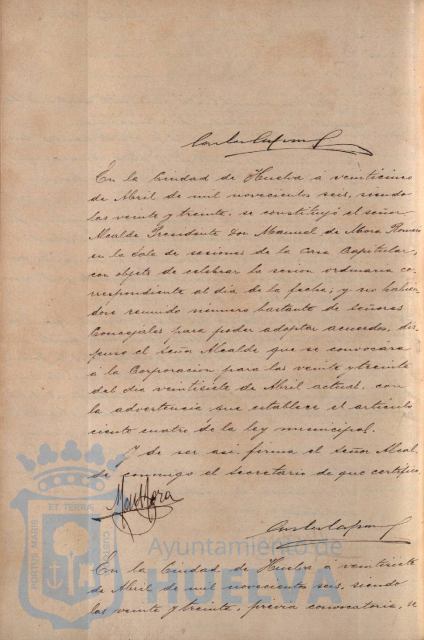 En la Ciudad de Huelva á veinticinco
de Abril de mil novecientos seis, siendo
las veinte y treinta, se constituyó el señor
Alcalde Presidente Don Manuel de Mora Romero
en la Sala de sesiones de la Casa Capitular,
con objeto de celebrar la sesion ordinaria co-
rrespondiente al dia de la fecha; y no habien-
dose reunido número bastante de señores
Concejales para poder adoptar acuerdos, dis-
puso el señor Alcalde que se convocara
á la Corporacion para las veinte y treinta
del dia veintisiete de Abril actual, con
la advertencia que establece el articulo
ciento cuatro de la ley municipal.
Y de ser asi, firma el señor Alcal-
de conmigo el secretario de que certifico.
PORTUS MARIS
ET TERRAE
CUSTODIA
Ayuntamiento de
HUELVA
En la Ciudad de Huelva á veintisiete
de Abril de mil novecientos seis, siendo
las veinte y treinta, previa convocatoria, se